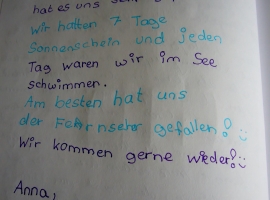 hat es uns
Wir hatten 7 Tage
Sonnenschein und jeden
Tag waren wir im See
schwimmen.
Am besten hat uns
der Fehrnseher gefallen!
Wir kommen gerne wieder!
Anna,